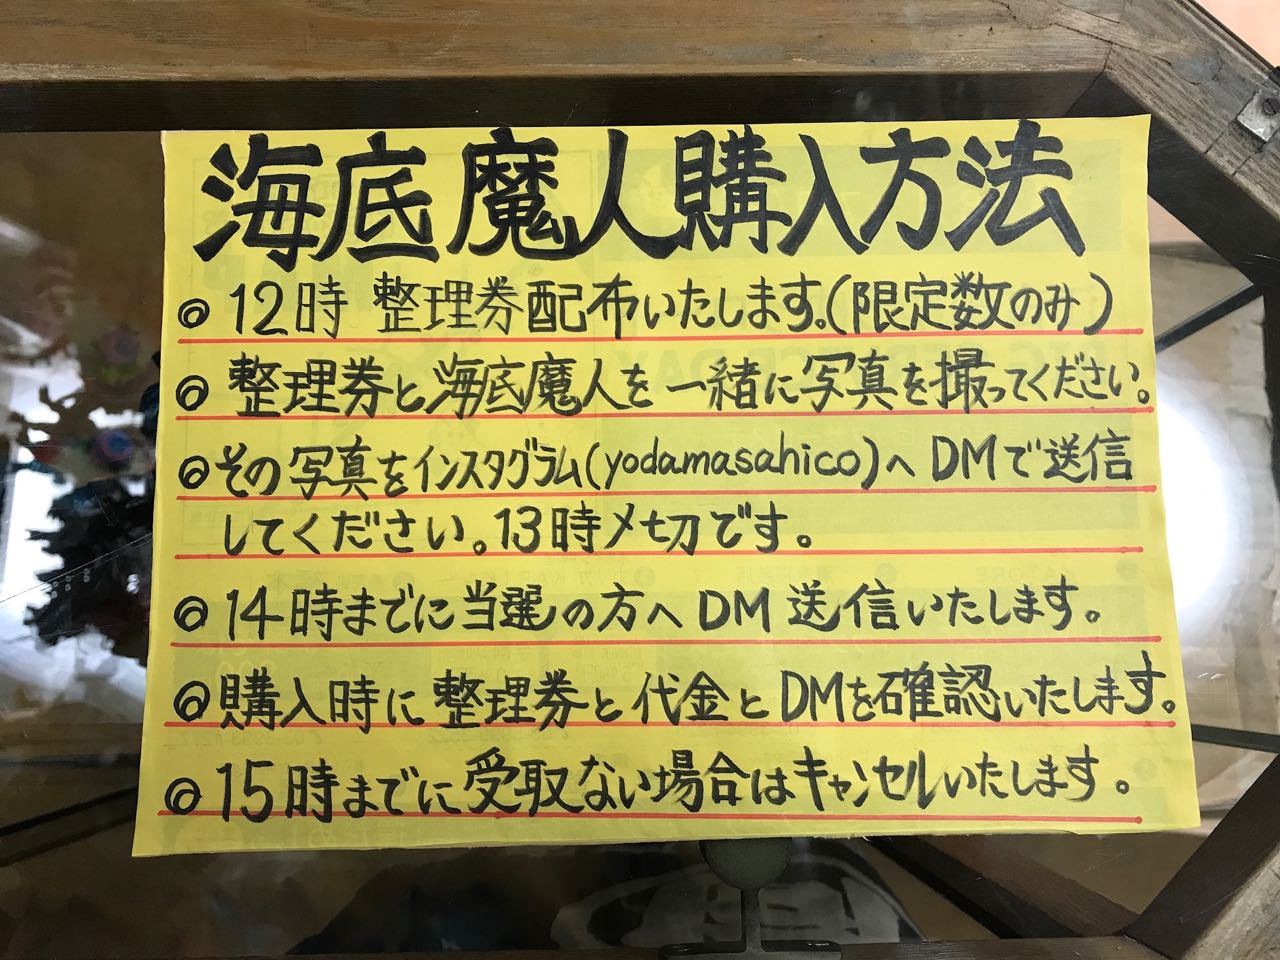 海底魔人購入方法
◎12時 整理券配布いたします。(限定数のみ)
◎整理券と海底魔人を一緒に写真を撮ってください。
◎その写真をインスタグラム(yodamasahico)へDMで送信
してください。13時〆切です。
◎14時までに当選の方へDM送信いたします。
◎購入時に整理券と代金とDMを確認いたします。
◎15時までに受取ない場合はキャンセルいたします。